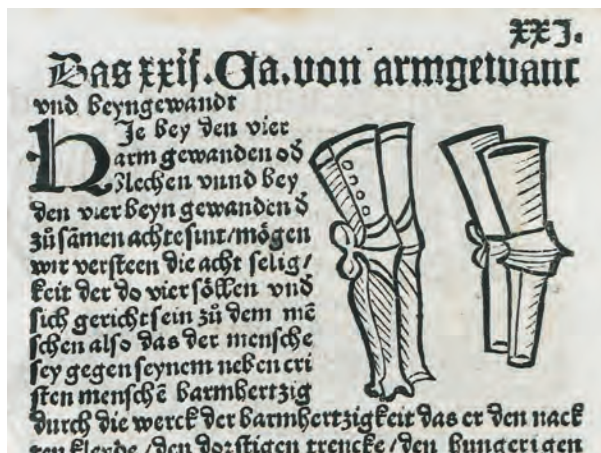 XXI.
Das xxij. Ca. von armgewant
vnd beyngewandt
Hje bey den vier
arm gewanden oð
Blechen vnnd bey
den vier beyn gewanden ð
zů samen achte sint/mögen
wir versteen die acht selig/
keit der do vier söllen vnd
sich gericht sein zů dem mē
schen also das der mensche
sey gegen seynem neben cri
sten menschē barmhertzig
durch die werck der barmhertzigkeit das er den nack
ten kleyde/den dorstigen trencke/den hungerigen